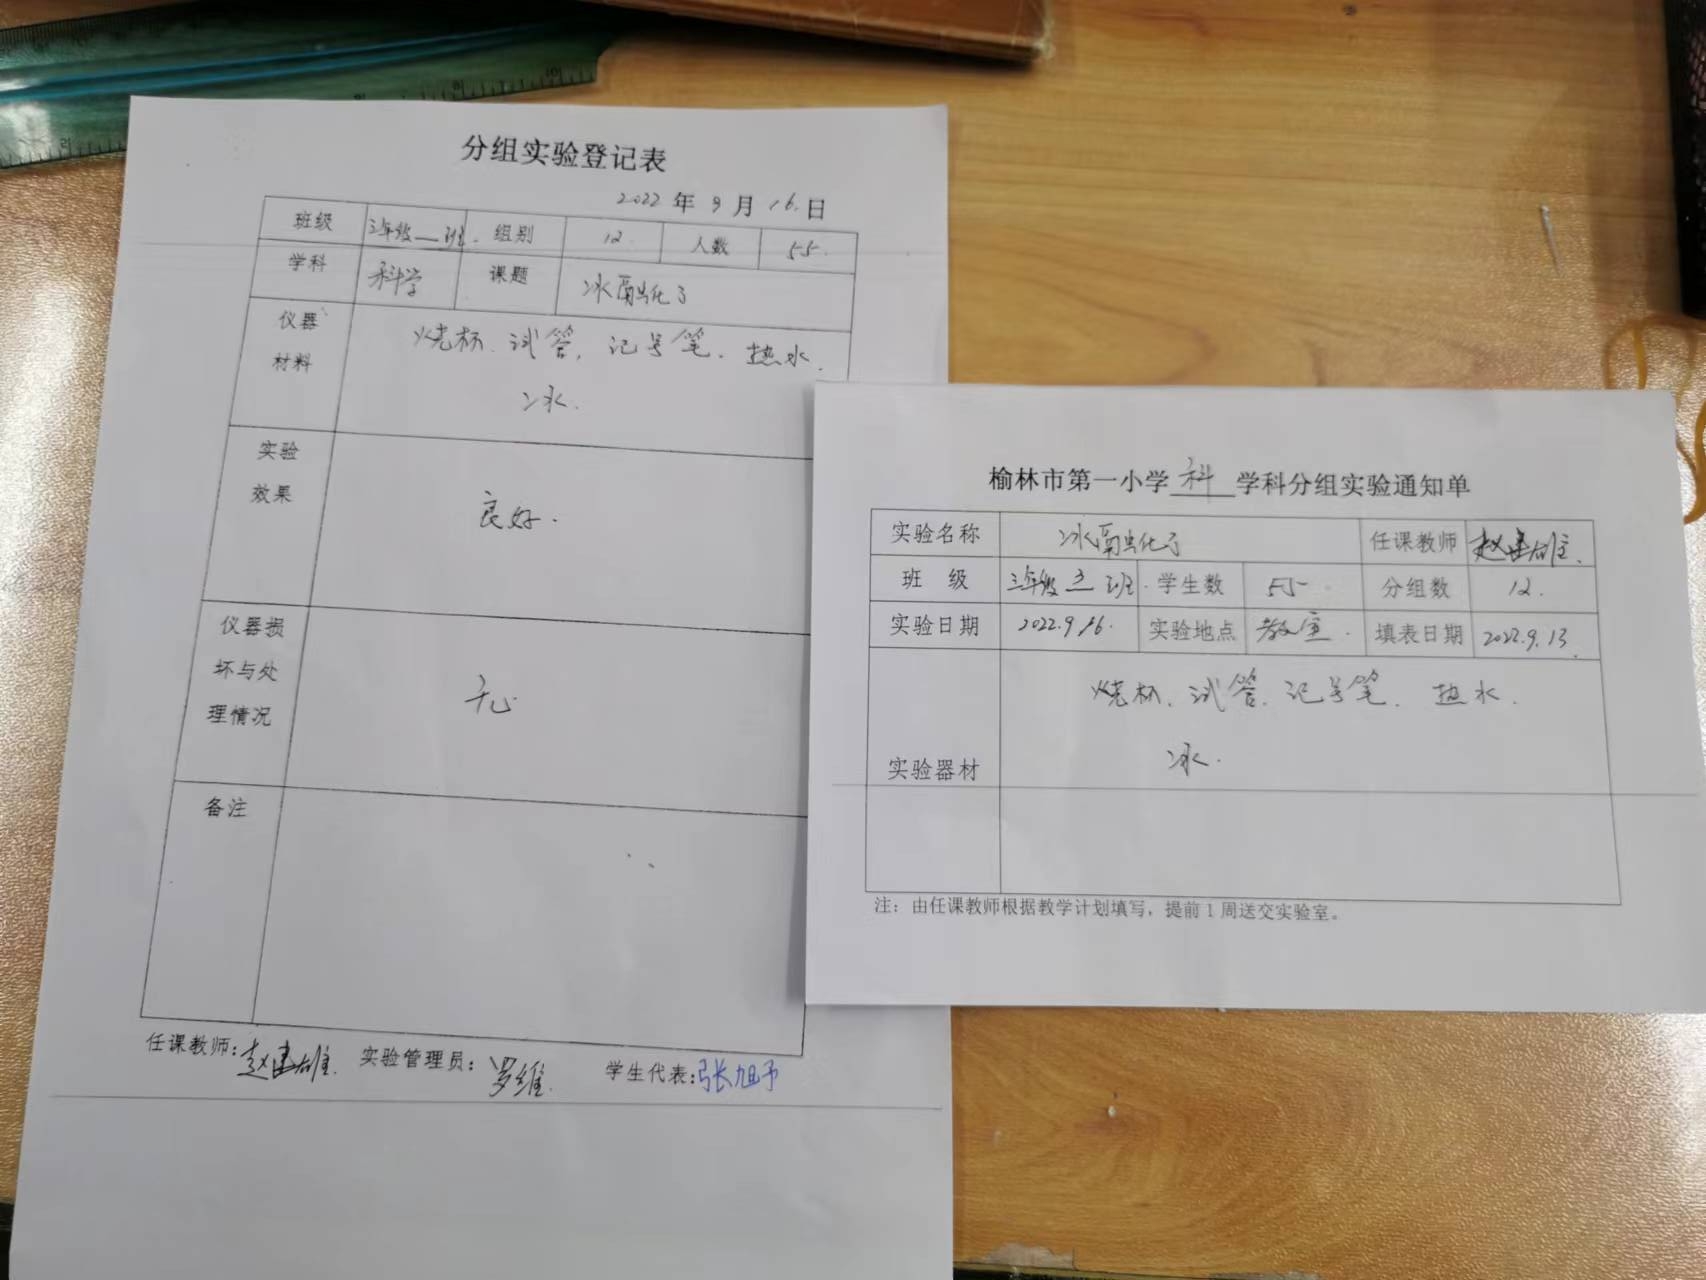 分组实验登记表
2022 年 9 月 16 日
班级 三年级一班 组别 12 人数 55
学科 科学 课题 冰融化了
仪器材料 烧杯、试管、记号笔、热水、
冰.
实验效果 良好.
仪器损坏与处理情况 无
备注
任课教师:赵建雄 实验管理员:罗维 学生代表:张旭予
榆林市第一小学 科 学科分组实验通知单
实验名称 冰融化了 任课教师 赵建雄
班 级 三年级 班 学生数 55 分组数 12.
实验日期 2022.9.16. 实验地点 教室. 填表日期 2022.9.13.
实验器材 烧杯、试管、记号笔、热水.
冰.
注:由任课教师根据教学计划填写,提前1周送交实验室。